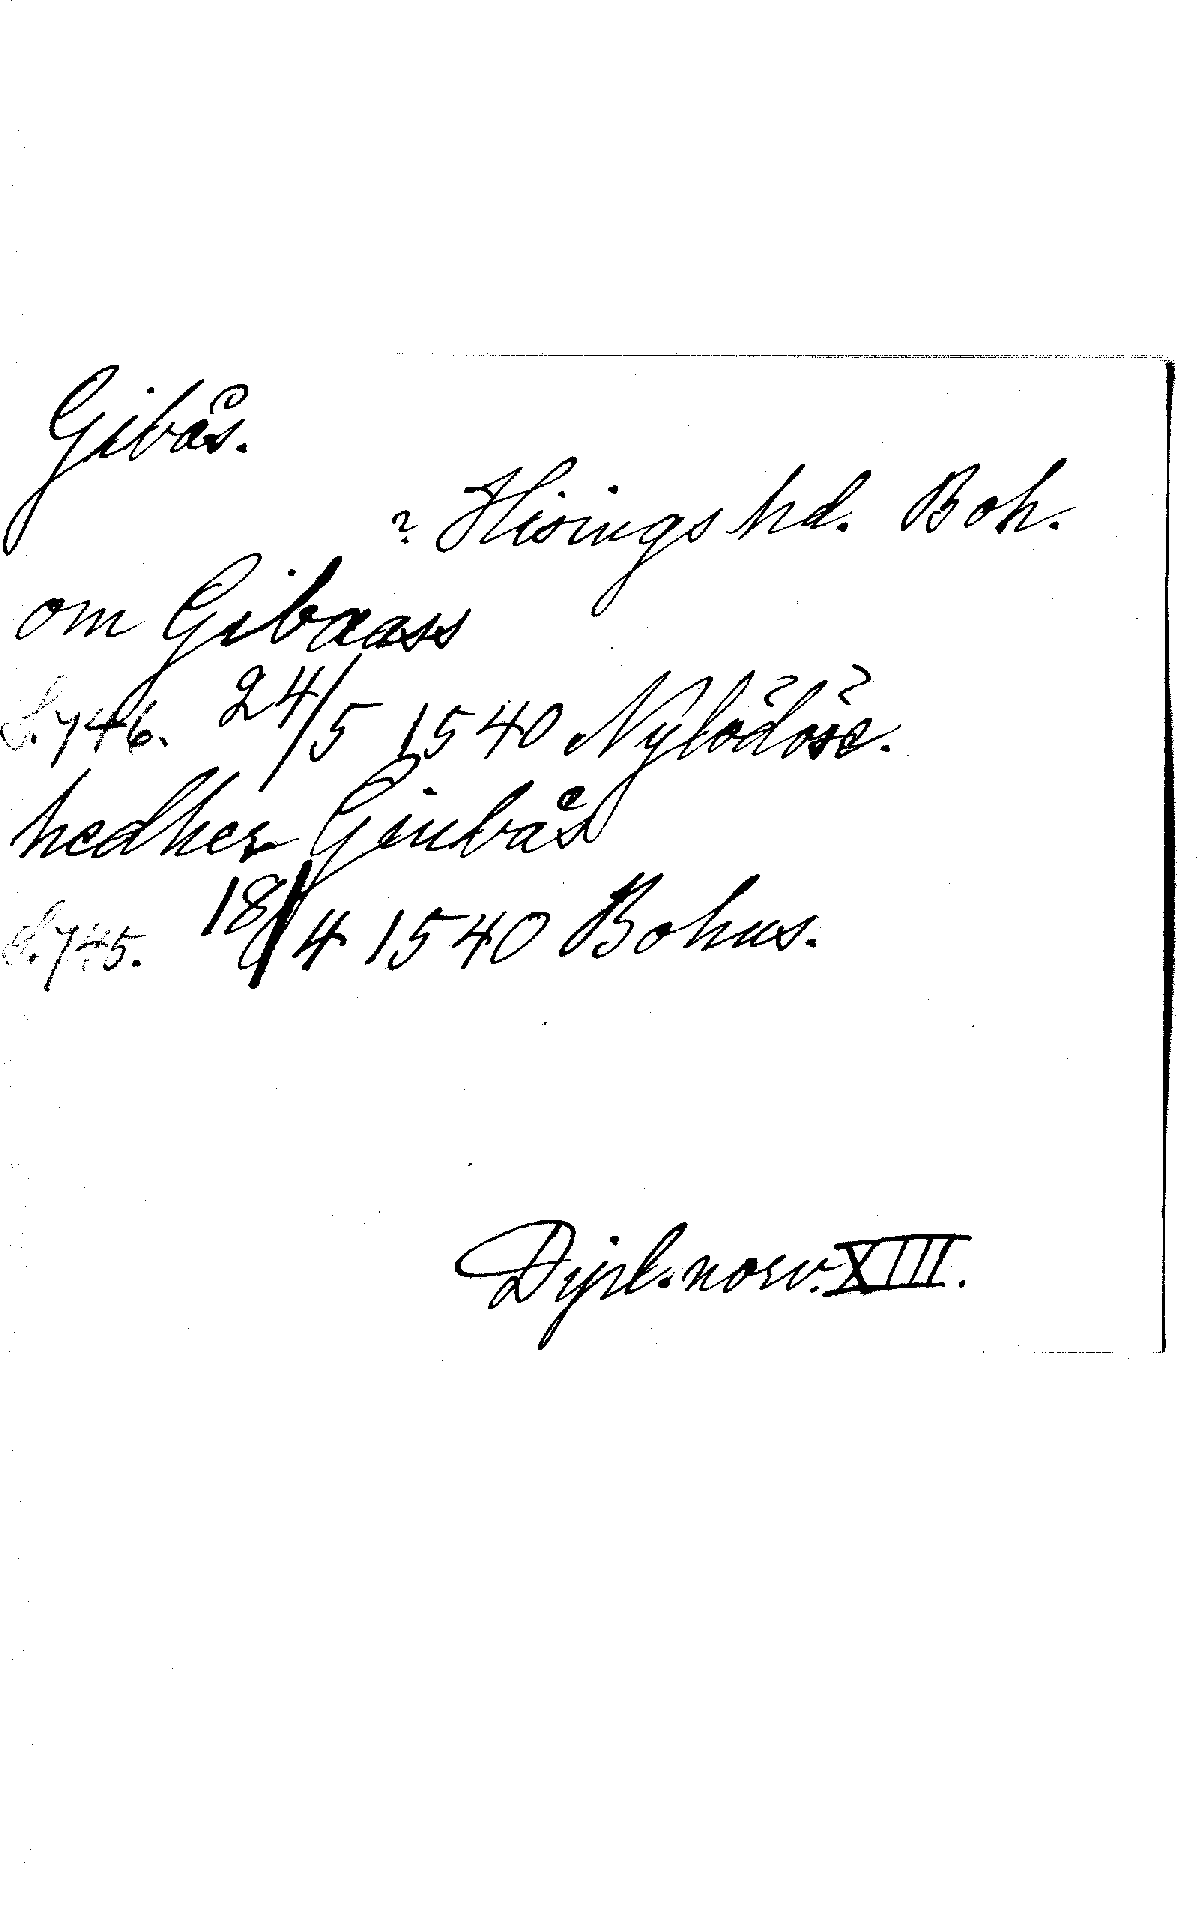 Gibås.
? Hisings hd. Boh.
om Gibaass
S. 746. 24/5 1540 Nylödöse.
hedher Giubås
S. 745. 18/4 1540 Bohus.
Dipl. norv. XIII.